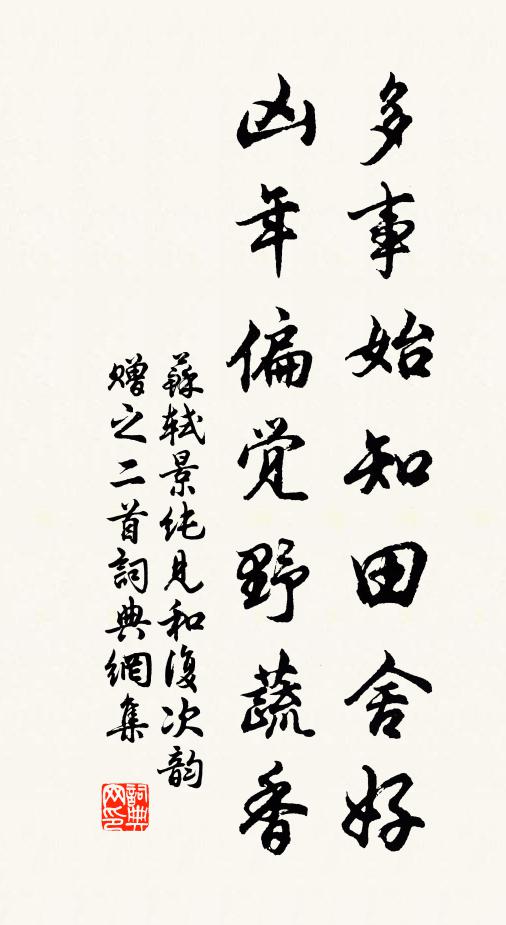 多事始知田舍好
凶年偏觉野蔬香
蘇轼景纯见和復次韵
赠之二首詞典網集
詞典网印